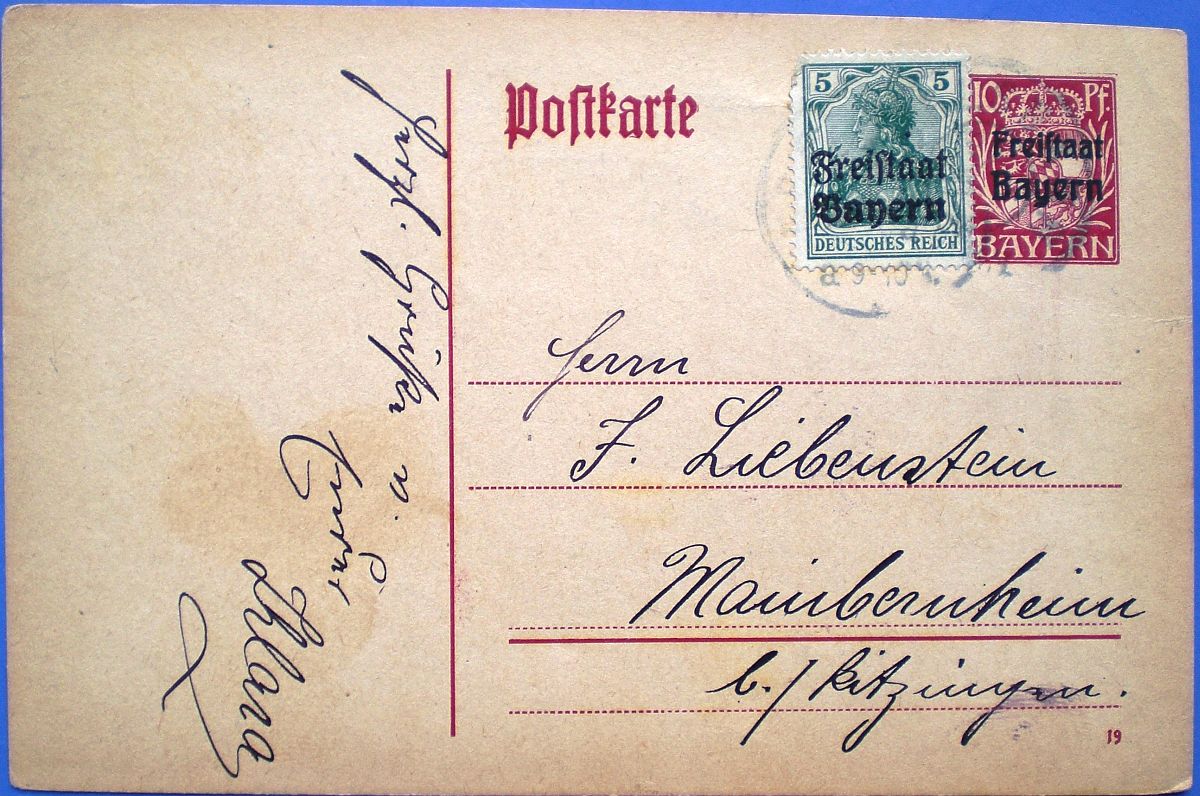 Postkarte
5 5
Freistaat
Bayern
DEUTSCHES REICH
10 Pf.
Freistaat
Bayern
BAYERN
Herrn
F. Liebenstein
Mainbernheim
b./ Kitzingen.
19
Herzl. Grüße u.
Klara